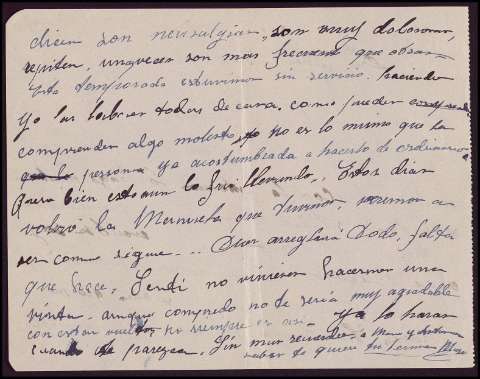 dicen son neuralgias, son muy dolorosas,
repiten, unas veces son mas frecuente que otras
Esta temporada estuvimos sin servicio. haciendo
yo las labores todas de casa, como pueden
comprender algo molesto, no es lo mismo que la
persona ya acostumbrada a hacerlo de ordinario
Pero bien esto aun lo fui llevando. Estos dias
volvió la Manuela que tuvimos, veremos a
ver como sigue... Dios arreglará todo, falta
que hace. Sentí no vinieran hacernos una
visita. aunque comprendo no te sería muy agradable
con estar no siempre es asi. Ya lo haras
cuando te parezca. Sin mas recuerdos a
sabes te quiere tu hermana